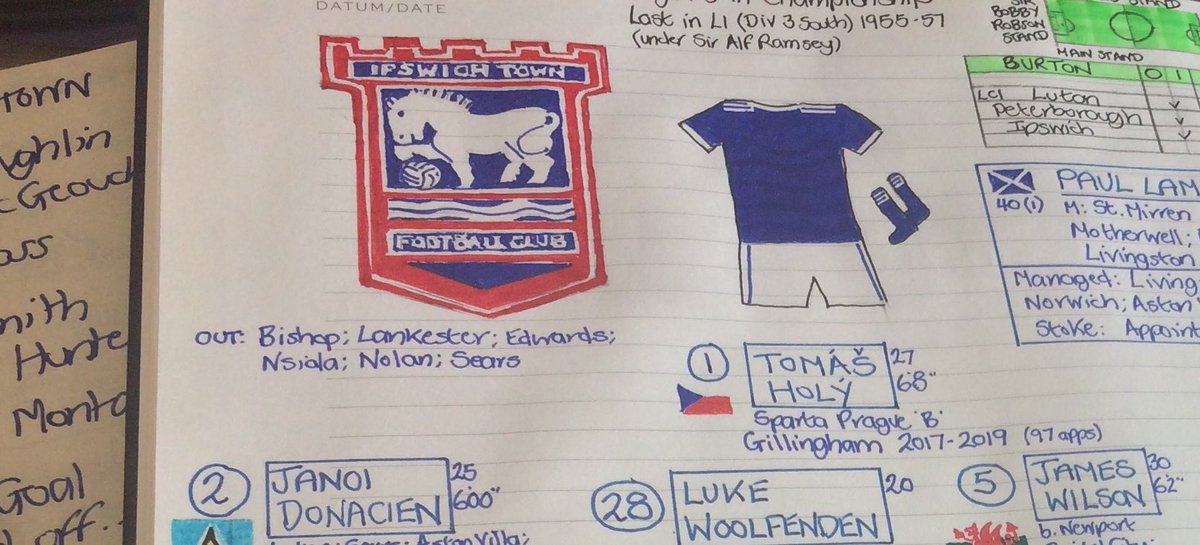 DATUM/DATE
Last in L1 (Div 3 South) 1955-57
(under Sir Alf Ramsey)
BOBBY
ROBSON
STAND
MAIN STAND
BURTON 0 1
LC1 Luton
Peterborough
Ipswich
IPSWICH TOWN
FOOTBALL CLUB
PAUL LAM
40(1) M: St. Mirren
Motherwell;
Livingston
Managed: Living
Norwich; Aston
Stoke: Appoint
OUT: Bishop; Lankester; Edwards;
Nsiala; Nolan; Sears
1 TOMÁŠ HOLÝ 27
6'8"
Sparta Prague 'B'
Gillingham 2017-2019 (97 apps)
2 JANOI DONACIEN 25
6'00"
Aston Villa;
28 LUKE WOOLFENDEN 20
5 JAMES WILSON 30
6'2"
b. Newport
TOWN
ghlin
Smith
Hunte
Goal
off..